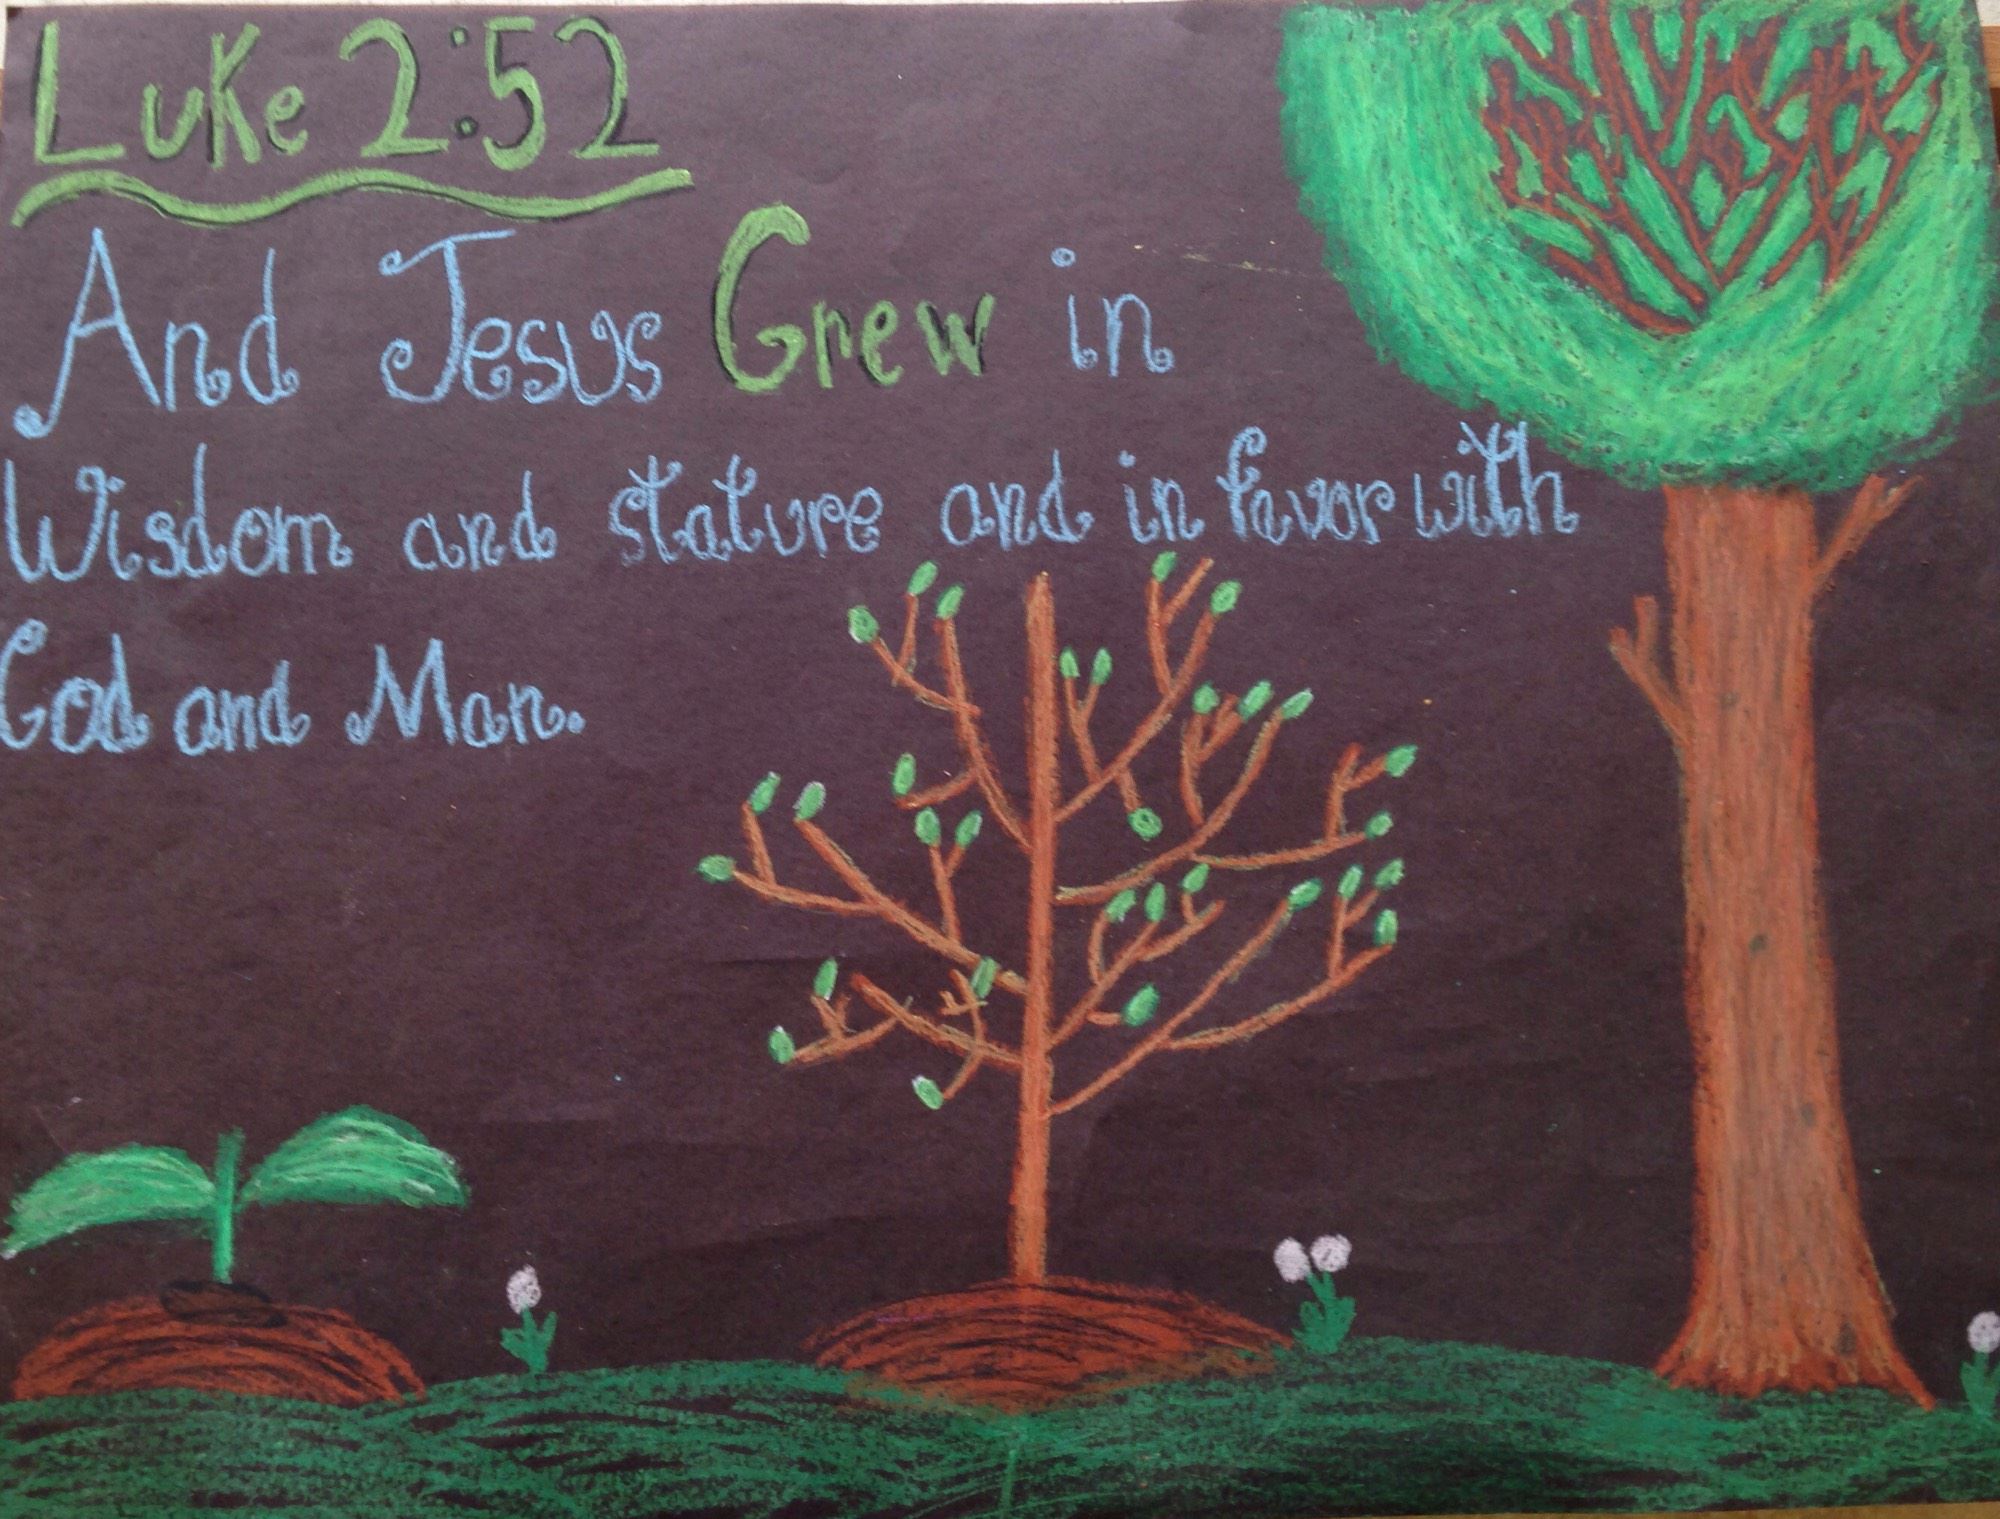 Luke 2:52
And Jesus Grew in
Wisdom and stature and in favor with
God and Man.